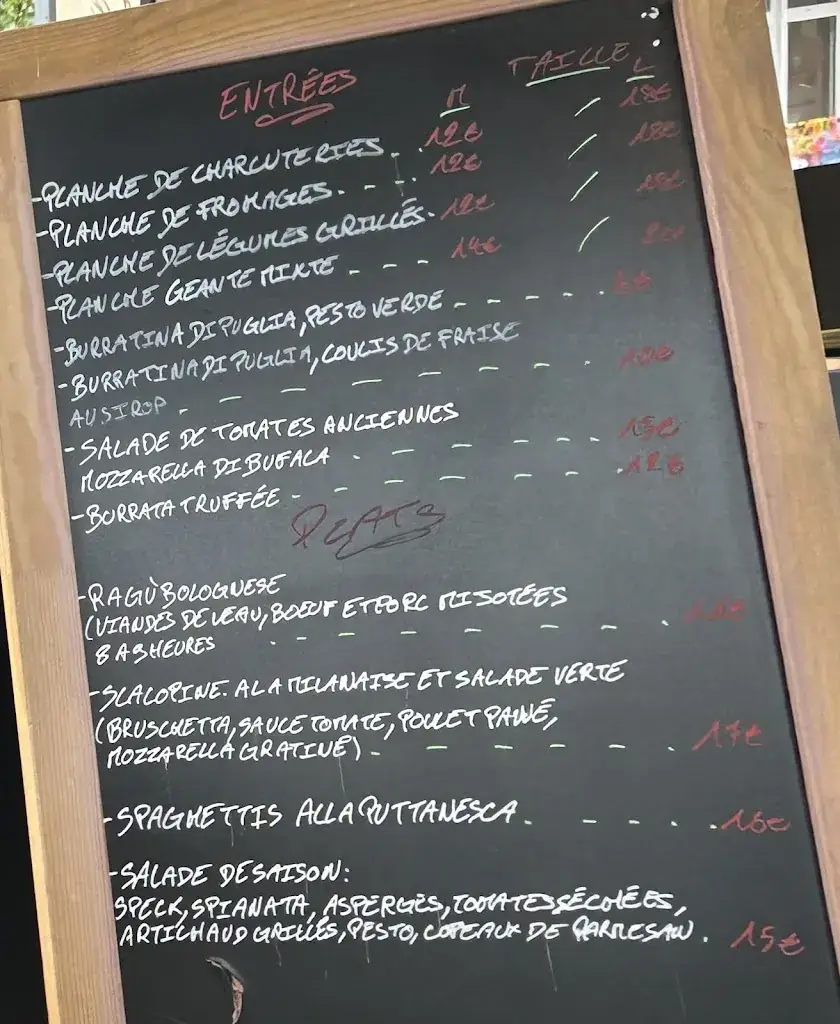 ENTRÉES TAILLE
M L
-PLANCHE DE CHARCUTERIES. . 12€ / 18€
-PLANCHE DE FROMAGES. - - . 12€ / 18€
-PLANCHE DE LÉGUMES GRILLÉS. 12€ / 18€
-PLANCHE GEANTE MIXTE - - - 14€ /
-BURRATINA DI PUGLIA, PESTO VERDE - - - - .
-BURRATINA DI PUGLIA, COULIS DE FRAISE
AU SIROP - - - - - - - .
-SALADE DE TOMATES ANCIENNES
MOZZARELLA DI BUFALA - - - - - - 15€
-BURRATA TRUFFÉE - - - - - - - . 12€
PLATS
-RAGÙ BOLOGNESE
(VIANDES DE VEAU, BOEUF ET PORC MIJOTÉES
8 A 9 HEURES . - - - - - - .
-SCALOPINE. A LA MILANAISE ET SALADE VERTE
(BRUSCHETTA, SAUCE TOMATE, POULET PANÉ,
MOZZARELLA GRATINÉ) - - - - - . 17€
-SPAGHETTIS ALLA PUTTANESCA. - - . . . 16€
-SALADE DE SAISON:
SPECK, SPIANATA, ASPERGES, TOMATES SÉCHÉES,
ARTICHAUD GRILLÉS, PESTO, COPEAUX DE PARMESAN. 15€